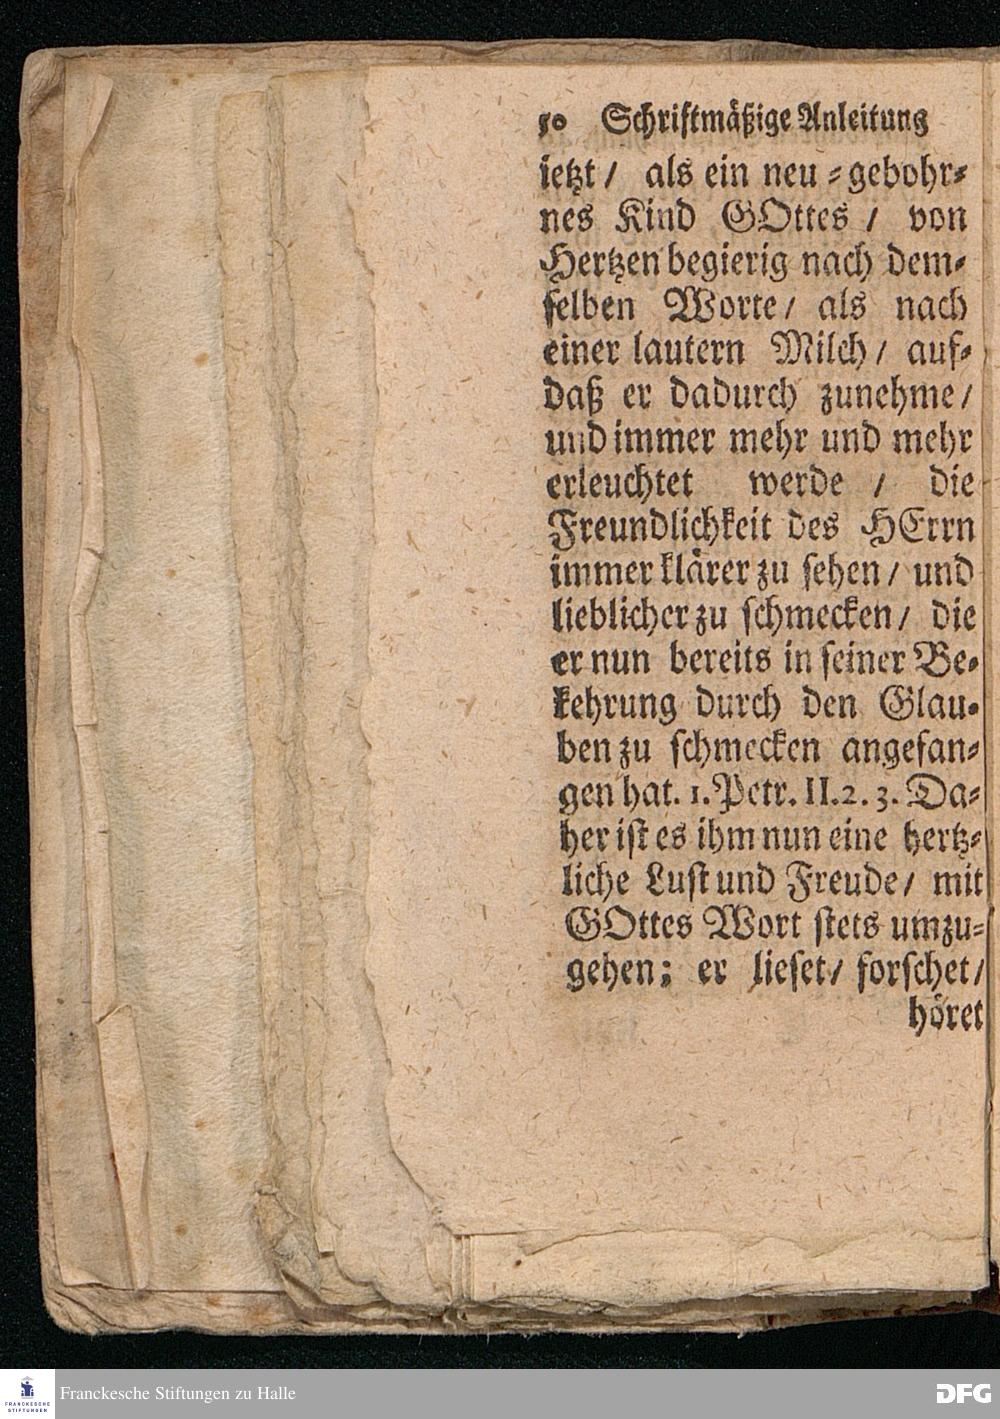 50 Schriftmäßige Anleitung
ietzt / als ein neu-gebohr-
nes Kind GOttes / von
Hertzen begierig nach dem-
selben Worte / als nach
einer lautern Milch / auf-
daß er dadurch zunehme /
und immer mehr und mehr
erleuchtet werde / die
Freundlichkeit des HErrn
immer klärer zu sehen / und
lieblicher zu schmecken / die
er nun bereits in seiner Be-
kehrung durch den Glau-
ben zu schmecken angefan-
gen hat. 1. Petr. II. 2. 3. Da-
her ist es ihm nun eine hertz-
liche Lust und Freude / mit
GOttes Wort stets umzu-
gehen; er lieset / forschet /
höret
FRANCKESCHE
STIFTUNGEN
Franckesche Stiftungen zu Halle
DFG